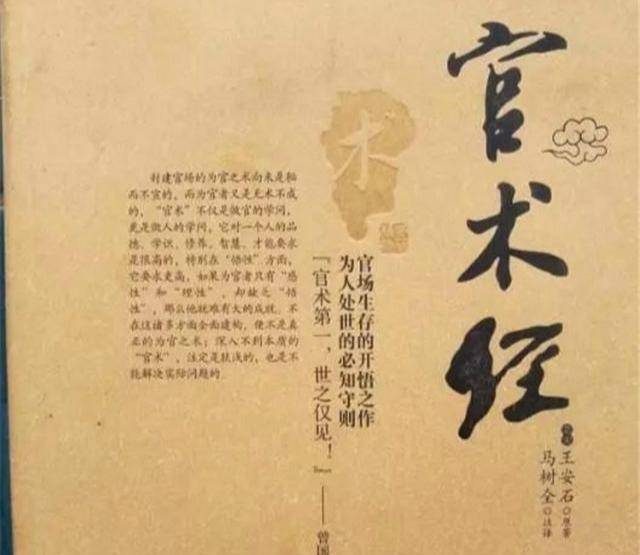 官术经
北宋◎王安石◎原著
马树全◎注译
官场生存的开悟之作
为人处世的必知守则
“官术第一，世之仅见！”——曾国
术
封建官场的为官之术向来是秘
而不宣的，而为官者又是无术不成
的，“官术”不仅是做官的学问，
更是做人的学问，它对一个人的品
德、学识、修养、智慧、才能要求
是很高的，特别在“悟性”方面，
它要求更高，如果为官者只有“感
性”和“理性”，却缺乏“悟
性”，那么他就难有大的成就。不
在这诸多方面全面建构，便不是真
正的为官之术；深入不到本质的
“官术”，注定是肤浅的，也是不
能解决实际问题的